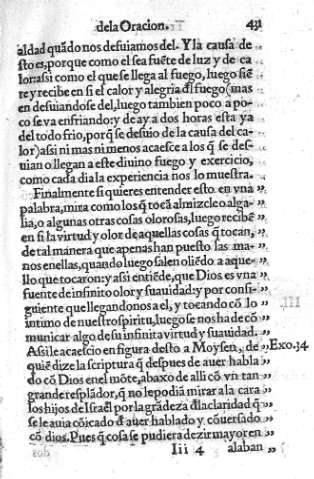 dela Oracion. 431
aldad quãdo nos desuiamos del. Y la causa de
sto es, porque como el sea fuẽte de luz y de ca
lor: assi como el que se llega al fuego, luego siẽ
te y recibe en si el calor y alegria dl fuego (mas
en desuiandose del, luego tambien poco a po-
co se va enfriando: y de ay a dos horas esta ya
del todo frio, porq̃ se desuio de la causa del ca-
lor) assi ni mas ni menos acaesce a los q̃ se des-
uian o llegan a este diuino fuego y exercicio,
como cada dia la experiencia nos lo muestra.
Finalmente si quieres entender esto en vna ”
palabra, mira como los q̃ tocã almizcle o alga- ”
lia, o algunas otras cosas olorosas, luego recibẽ ”
en si la virtud y olor de aquellas cosas q̃ tocan, ”
de tal manera que apenas han puesto las ma- ”
nos en ellas, quando luego salen oliẽdo a aque- ”
llo que tocaron: y assi entiẽde, que Dios es vna ”
fuente de infinito olor y suauidad: y por consi- ”
guiente que llegandonos a el, y tocando cõ lo ”
intimo de nuestro spiritu, luego se nos ha de co ”
municar algo de su infinita virtud y suauidad. ”
Assi le acaescio en figura desto a Moysen, de ” Exo.34
quiẽ dize la scriptura q̃ despues de auer habla ”
do cõ Dios en el mõte, abaxo de alli cõ vn tan ”
grande resplãdor, q̃ no le podiã mirar a la cara ”
los hijos de Israel por la grãdeza d̃ la claridad q̃ ”
se le auia cõicado d̃ auer hablado y cõuersado ”
cõ dios. Pues q̃ cosa se pudiera dezir mayor en ”
Iii 4 alaban ”